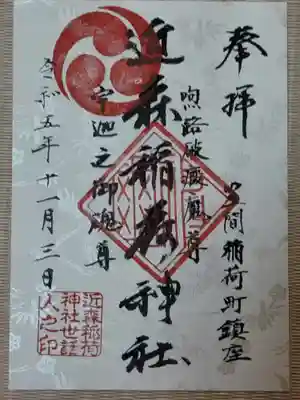 奉拝
間稲荷町鎮座
尊
近森稲荷神社
宇迦之御魂尊
令和五年十一月三日
近森稲荷
神社世話
人之印